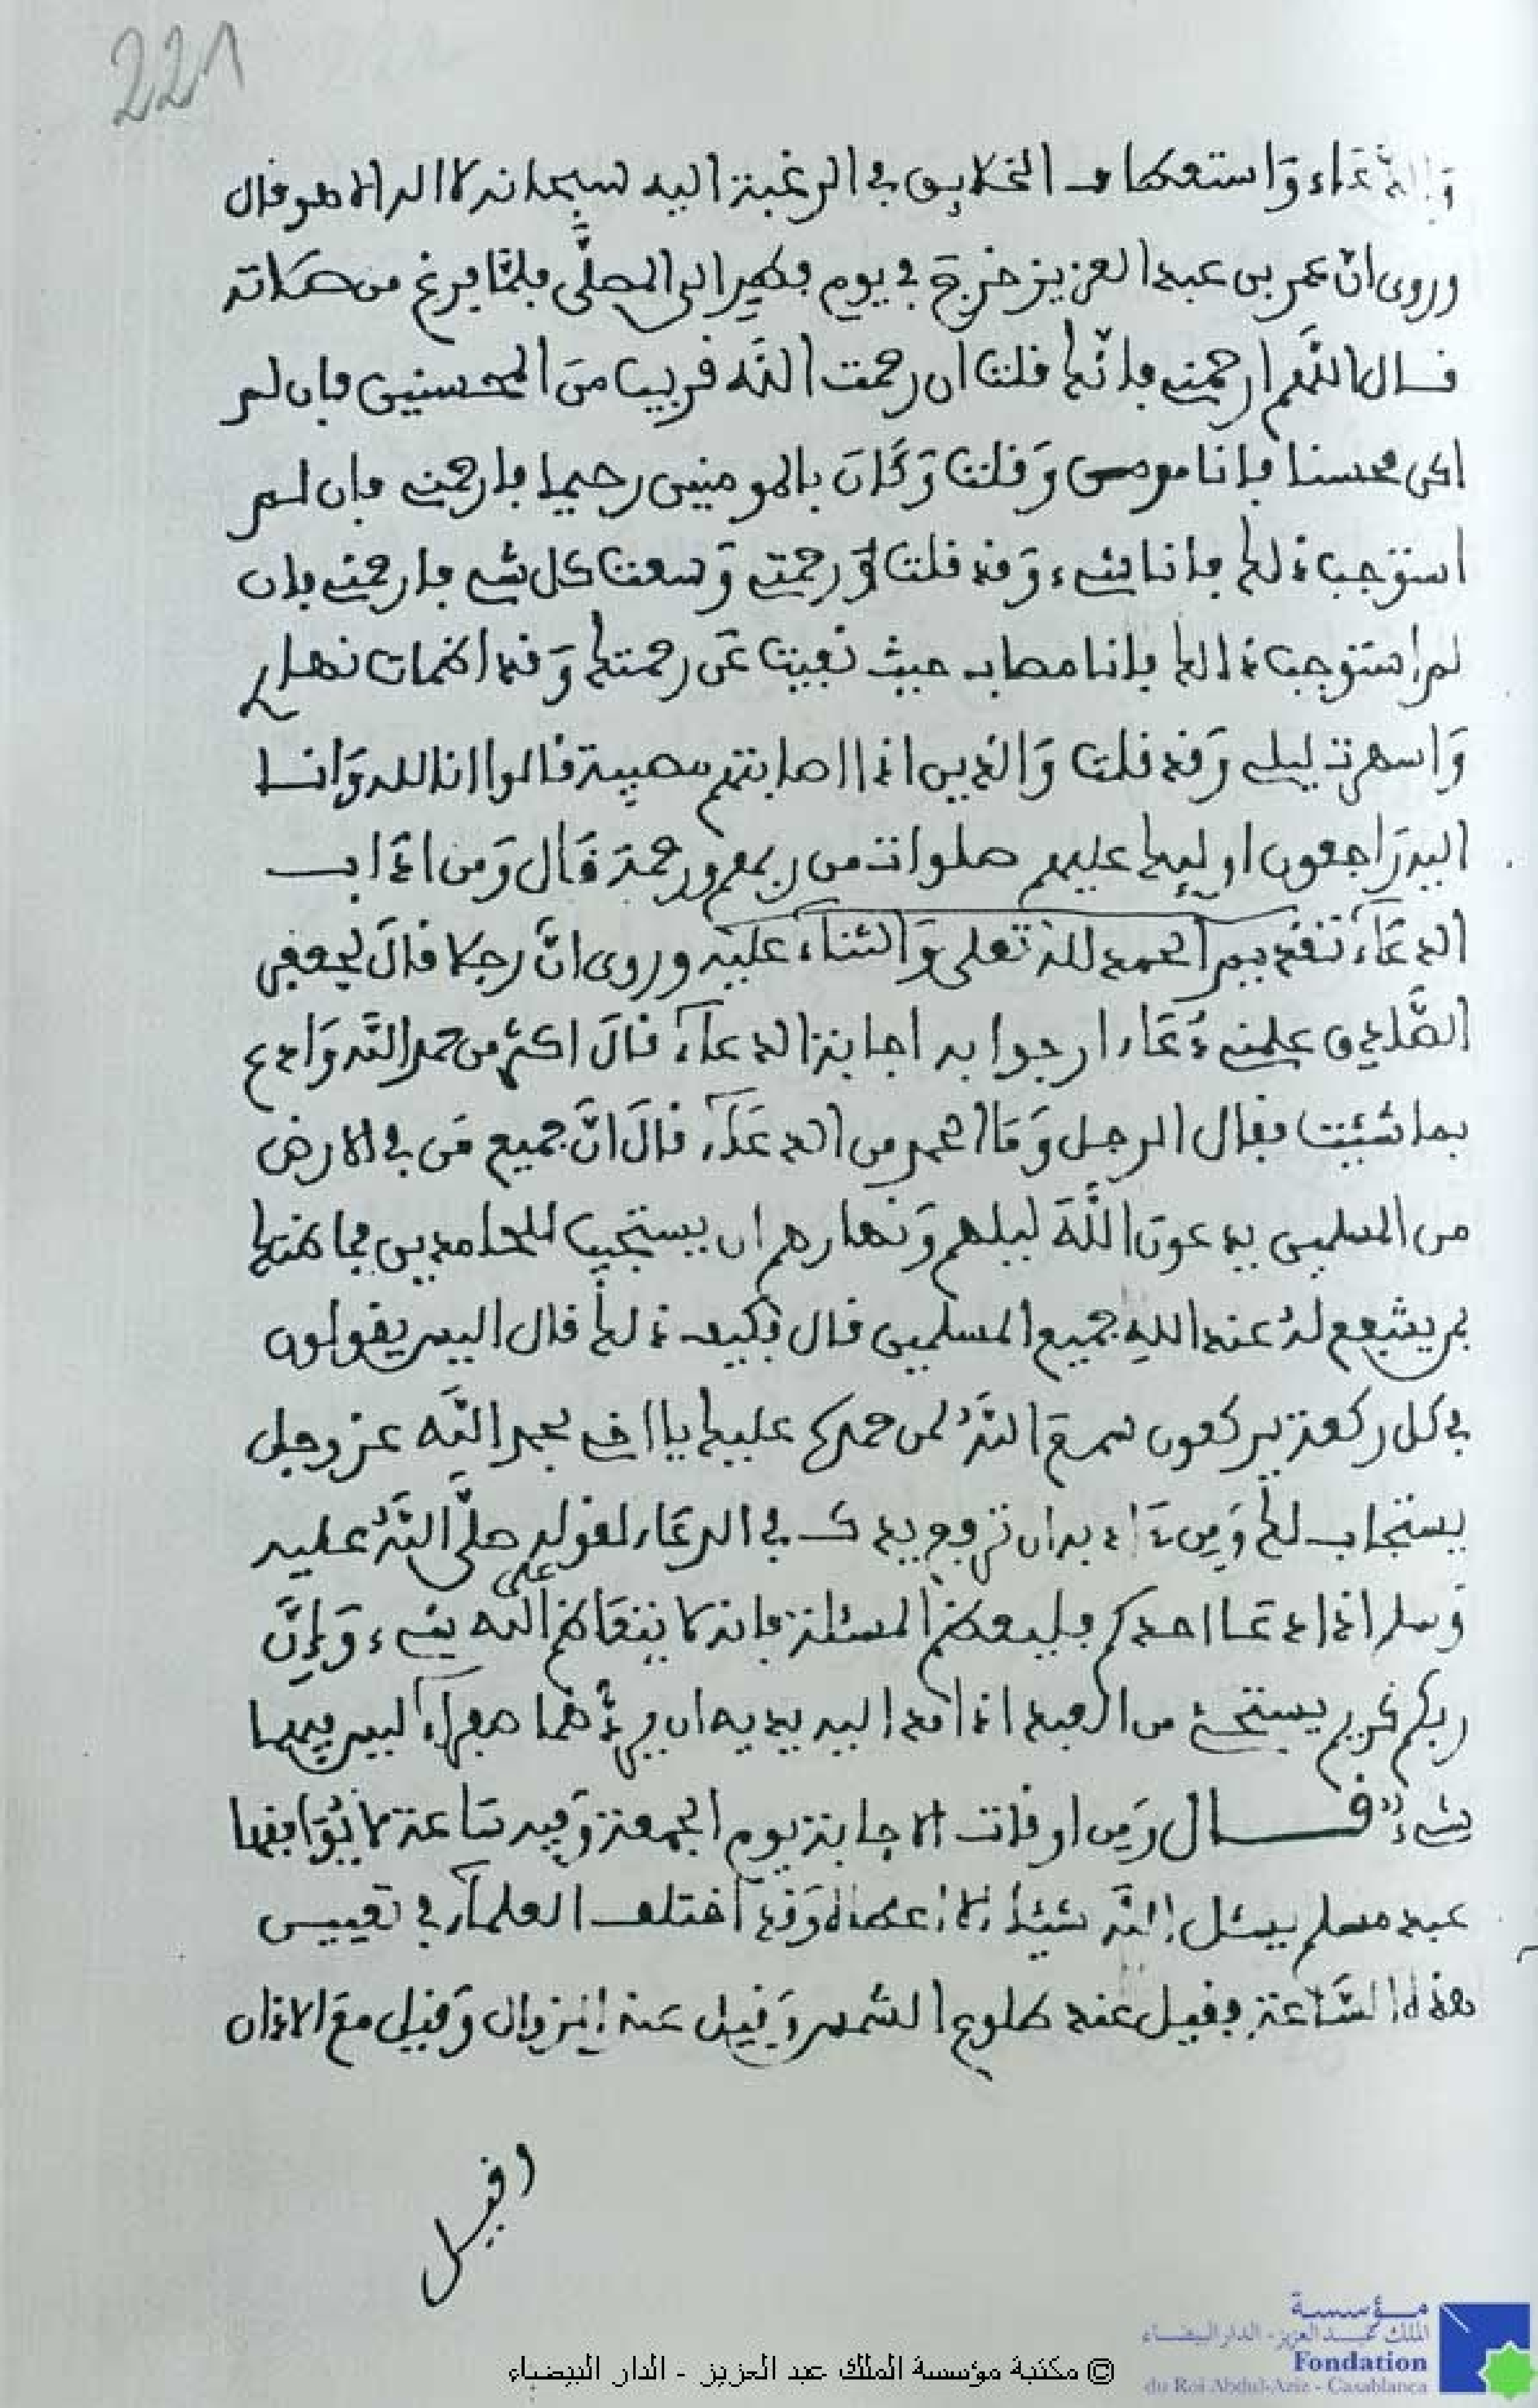 221
والدعاء واستعطاف الخلايق في الرغبة اليه سبحانه لا اله الا هو قال
وروى انّ عمر بن عبد العزيز خرج في يوم فطر الى المصلّى فلمّا فرغ من صلاته
قال اللّهم ارحمني فإنّك قلت ان رحمت اللّه قريب منَ المحسنين فإن لم
اكن محسنا فإنا مومن وَقلت وَكَانَ بالمومنين رحيما فارحمني فإن لم
استوجب ذلك فإنا شيء وَقد قلت وَرحمتي وَسعت كل شيء فارحمني فإن
لم استوجب ذالك فإنا مصاب حيث نفيت عَن رحمتك وَقد اظمات نهاري
وَاسهرت ليلي وَقد قلت وَالذين اذا اصابتهم مصيبة قالوا انا لله وَانا
اليه رَاجعون اوليك عليهم صلوات من ربهم ورحمة قَال وَمن اداب
الدعَاء تقديم الحمد للّه تعلى وَالثناء عليه وروى انّ رجلا قالَ لجعفر
الصّادق علمني دُعَاء ارجوا به اجابة الدعاء قالَ اكثر من حمد اللّه وَادع
بما شئت فقال الرجل وَمَا الحمد من الدعَاء قالَ انّ جميع مَن في الارض
من المسلمين يدعون اللّهَ ليلهم وَنهارهم ان يستجيب للحامدين فما ظنك
بمن يشفع لهُ عند اللهِ جميع المسلمين قال وَكيف ذلك قال اليس يقولون
في كل ركعة يركعون سمعَ اللّهُ لمن حمدهُ عليك يا اخي بحمد اللّه عز وجل
يستجاب لك وَمِن ءَادابه ان ترفع يديك في الدعَاء لقوله صلّى اللّهُ عليه
وَسلم اذا دعَا احدكم فليعظم المسئلة فإنه لا يتعَاظم على اللّه شيء وَإنّ
ربكم كريم يستحي من العبد اذا مد اليه يديه ان يردّهما صفراً ليس فيهما
شيء قال وَمِن اوقات الاجابة يوم الجمعة وَفيه سَاعة لا يُوَافقها
عبد مسلم يسئل اللّه شيئا الا اعطاه وَقد اختلف العلماء في تعيين
هذه السَّاعة فقيل عند طلوع الشمس وَقيل عند الزوال وَقيل معَ الاذان
وقيل
© مكتبة مؤسسة الملك عبد العزيز - الدار البيضاء
مؤسسة
الملك عبد العزيز - الدار البيضاء
Fondation
du Roi Abdul-Aziz - Casablanca